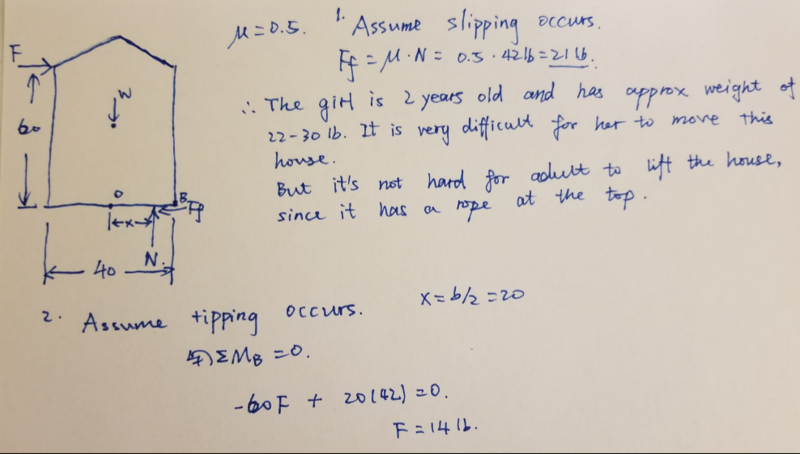 μ = 0.5.
1. Assume slipping occurs.
Ff = μ · N = 0.5 · 42 lb = 21 lb.
∴ The girl is 2 years old and has approx weight of
22-30 lb. It is very difficult for her to move this
house.
But it's not hard for adult to lift the house,
since it has a rope at the top.
F
W
60
O
B
Ff
x
N.
40
2. Assume tipping occurs.
x = b/2 = 20
↰+) ΣMB = 0.
-60F + 20(42) = 0.
F = 14 lb.